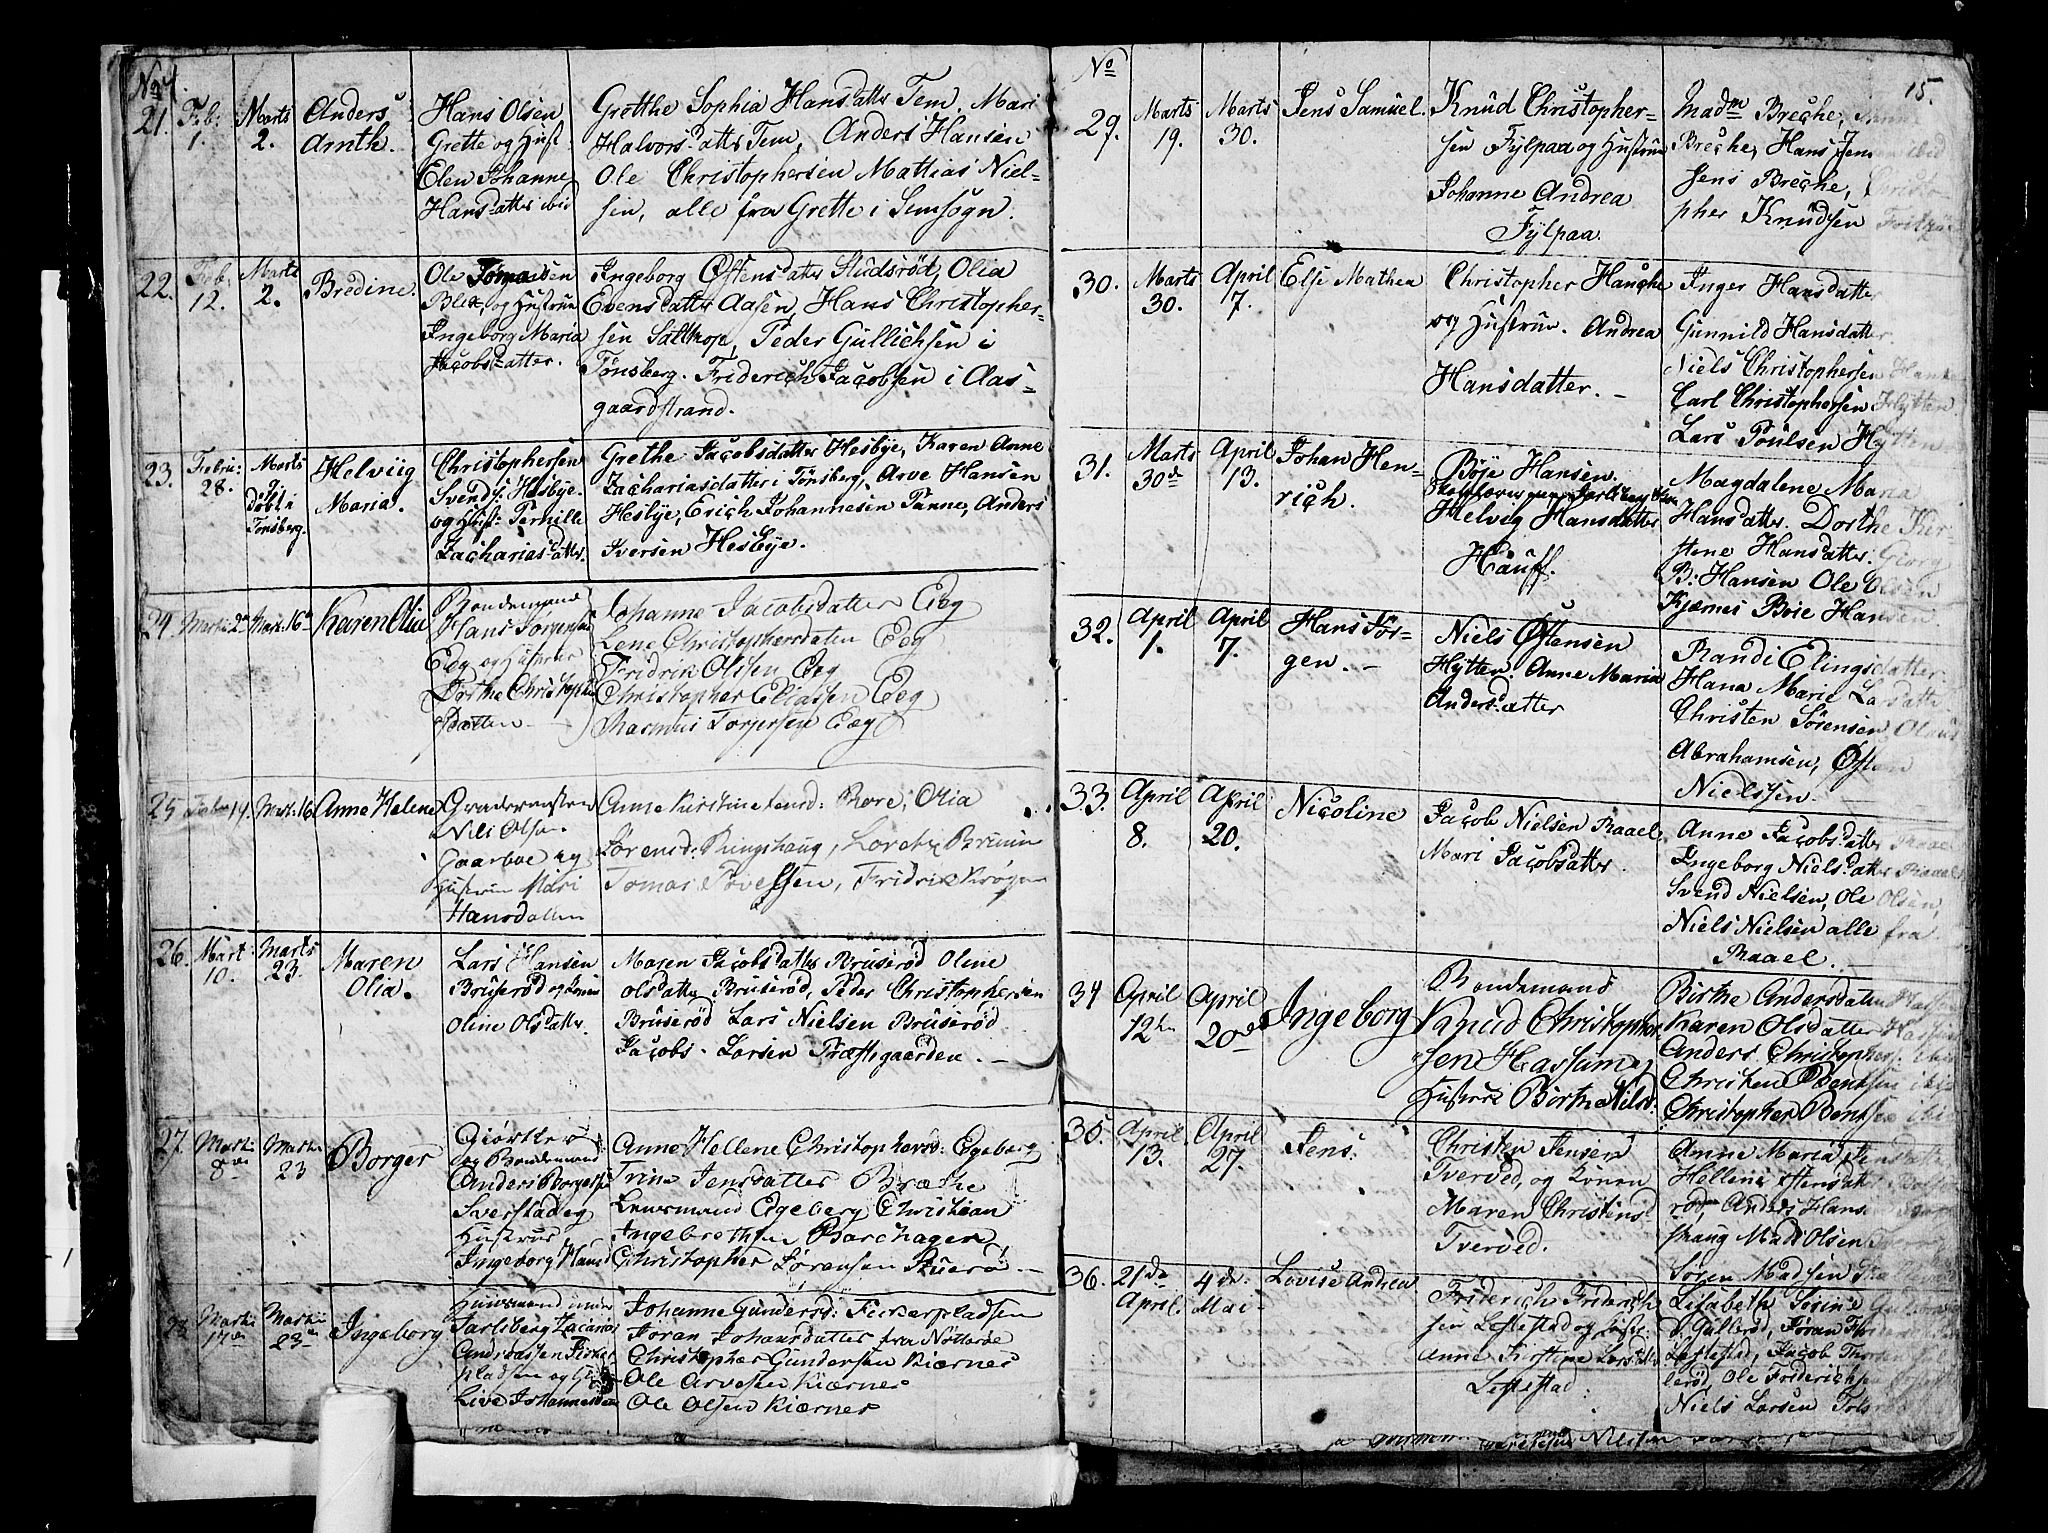 No
21.
Feb: 1.
Marts 2.
Anders
Arnth.
Hans Olsen
Grette og Hust
Elen Johanne
Hansdatter ibid
Grethe Sophia Hansdatter Tem. Mari
Halvorsdatter Tem, Anders Hansen
Ole Christophersen Mathias Niel-
sen, alle fra Grette i Semsogn.
22.
Feb: 12.
Marts 2.
Bredine.
Ole
og Hustrue
Ingeborg Maria
Jacobsdatter.
Ingeborg Østensdatter Studsrød, Olia
Evensdatter Aasen, Hans Christopher-
sen Saltkop, Peder Gullichsen i
Tønsberg. Friderich Jacobsen i Aas-
gaardstrand.
23.
Febru: 28.
Marts
døbt i
Tønsberg.
Helviig
Maria.
Christophersen
Svends: Hesbye
og Hust: Pernille
Zachariasdatter.
Grethe Jacobsdatter Hesbye, Karen Anne
Zachariasdatter i Tønsberg, Arve Hansen
Hesbye, Erich Johannesen Tanne, Anders
Iversen Hesbye.
24.
Karen Olia
Bondemand
Hans Torgersen
Eeg og Hustrue
Dorthe Christoph
datter
Johanne Jacobsdatter Eeg
Lene Christophersdatter Eeg
Fridrik Olsen Eeg
Christopher Eliassen Eeg
Rasmus Torgersen Eeg
25
Marti 16
Anne Helene
Nils Olsen
Gaarboe og
Hustrue Mari
Hansdatter
Anne Kirstine
Olia
Sørensd: Ringshaug,
Tomas
Fridrik
26.
Mart 10.
Marts 23
Maren
Olia.
Lars Hansen
Bruserød og Konen
Oline Olsdatter.
Maren Jacobsdatter Bruserød Oline
Olsdatter Bruserød, Peder Christophersen
Bruserød Lars Nielsen Bruserød
Jacobs Larsen Præstegaarden.
27.
Marti 8de
Marti 23
Borger
og Bondemand
Anders Borgersen
Sverstad og
Hustrue
Ingeborg Hans
Anne Hellene Christophersd: Egeberg
Trine Jensdatter Bræke
Lensmand Egeberg Christian
Ingebrethsen Barchager,
Christopher Sørensen
28
Marti 17de
Marti 23de
Ingeborg
Huusmand under
Jarlsberg Zacarias
Andreassen
og
Live Johannesdatter
Johanne Gundersd:
Joran Johansdatter fra Nøtterøe
Christopher Gundersen Kiærnes
Ole Arvesen Kiærnes
Ole Olsen Kiærnes
No
15.
29.
Marts 19.
Marts 30.
Jens Samuel.
Knud Christopher-
sen Fylpaa og Hustrue
Johanne Andrea
Fylpaa.
Madm Breche,
Breche, Hans Jen
sens Breche,
pher Knudsen
30.
Marts 30.
April 7.
Else Mathea
Christopher Hauche
og Hustrue. Andrea
Hansdatter.
Inger Hansdatter
Gunnild Hansdatter.
Niels Christophersen
Carl Christophersen Hytten
Lars Poulsen Hytten
31.
Marts 30d
April 13.
Johan Hen-
rich.
Böje Hansen.
Helvig Hansdatter
Hauff.
Magdalene Maria
Hansdatter. Dorthe Kir-
stene Hansdatter. Georg
B: Hansen Ole Olsen
Kjærnes Boie Hansen
32.
April 1.
April 7.
Hans Jør-
gen.
Niels Østensen
Hytten. Anne Maria
Andersdatter
Randi Elingsdatter
Hana Marie Larsdatt
Christen Sørensen Olaus
Abrahamsen, Østen
Nielssen.
33.
April 8.
April 20.
Nicoline
Jacob Nielsen Raael.
Mari Jacobsdatter.
Anne Jacobsdatter Raael
Ingeborg Nielsdatter Raael
Svend Nielsen, Ole Olsen,
Niels Nielsen alle fra
Raael.
34
April 12te
April 20de
Ingeborg
Bondemand
Knud Christopher-
sen Hassum og
Hustrue Birthe Nilsd:
Birthe Andersdatter
Karen Olsdatter
Anders Christophers:
Christen Bentsen ibid
Christopher Bentsen ibid
35.
April 13.
April 27.
Jens.
Christen Jensen
Tverved, og Konen
Maren Christensd
Tverved.
Anne Maria Jensdatte
Hellene
rød, Anders Hans
shaug Mads Olsen
Søren Madsen
36.
21de April.
4de Mai
Lovise Andrea
Friderich Friderich
sen Leftestad og
Anne Kirstine Larsdatter
Leftestad.
Lisabeth Sirine
Gullerød, Jøran
Leftestad, Jacob
Ole Friderichsen
Niels Larsen